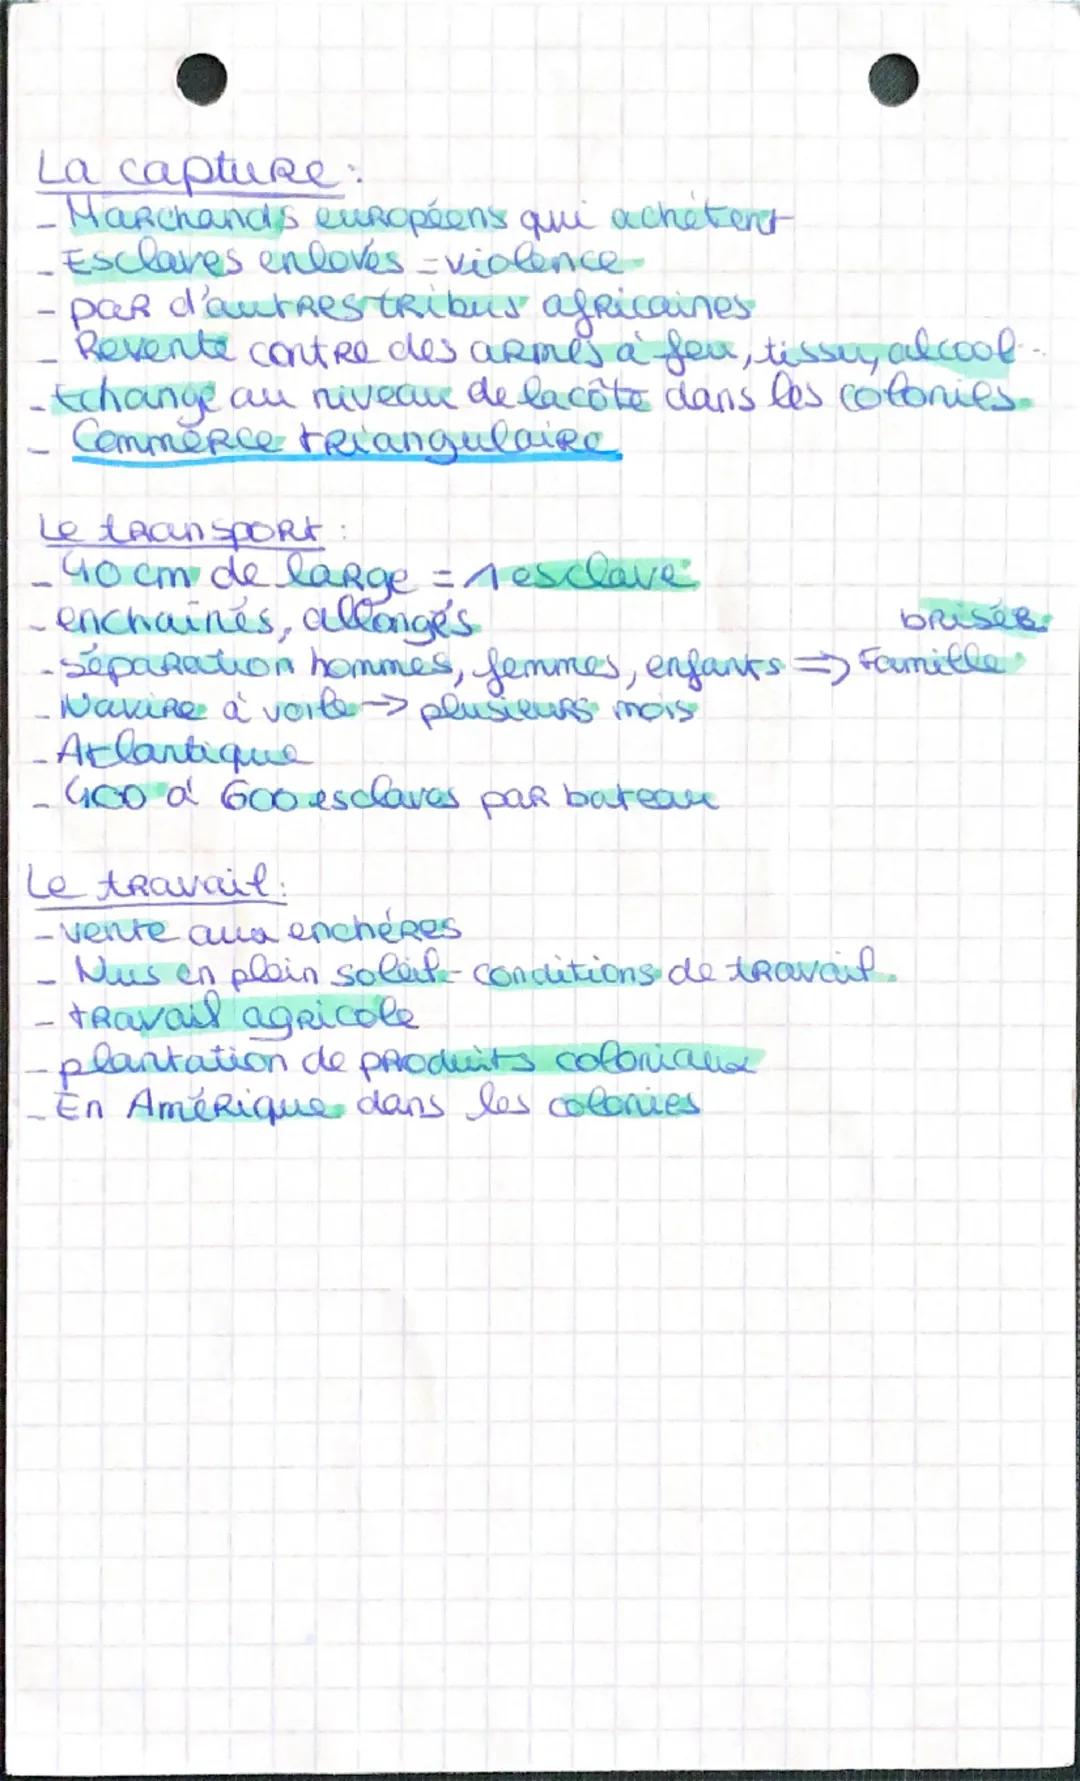 La capture :
- Marchands européens qui achètent
- Esclaves enlevés = violence
- par d'autres tribus africaines
- Revente contre des armes à feu, tissu, alcool...
- échange au niveau de la côte dans les colonies.
- Commerce triangulaire
Le transport :
- 40 cm de large = 1 esclave
- enchaînés, allongés
- séparation hommes, femmes, enfants => Famille brisée
- Navire à voile -> plusieurs mois
- Atlantique
- 400 à 600 esclaves par bateau
Le travail :
- vente aux enchéres
- Nus en plein soleil - conditions de travail.
- travail agricole
- plantation de produits coloniaux
- En Amérique dans les colonies